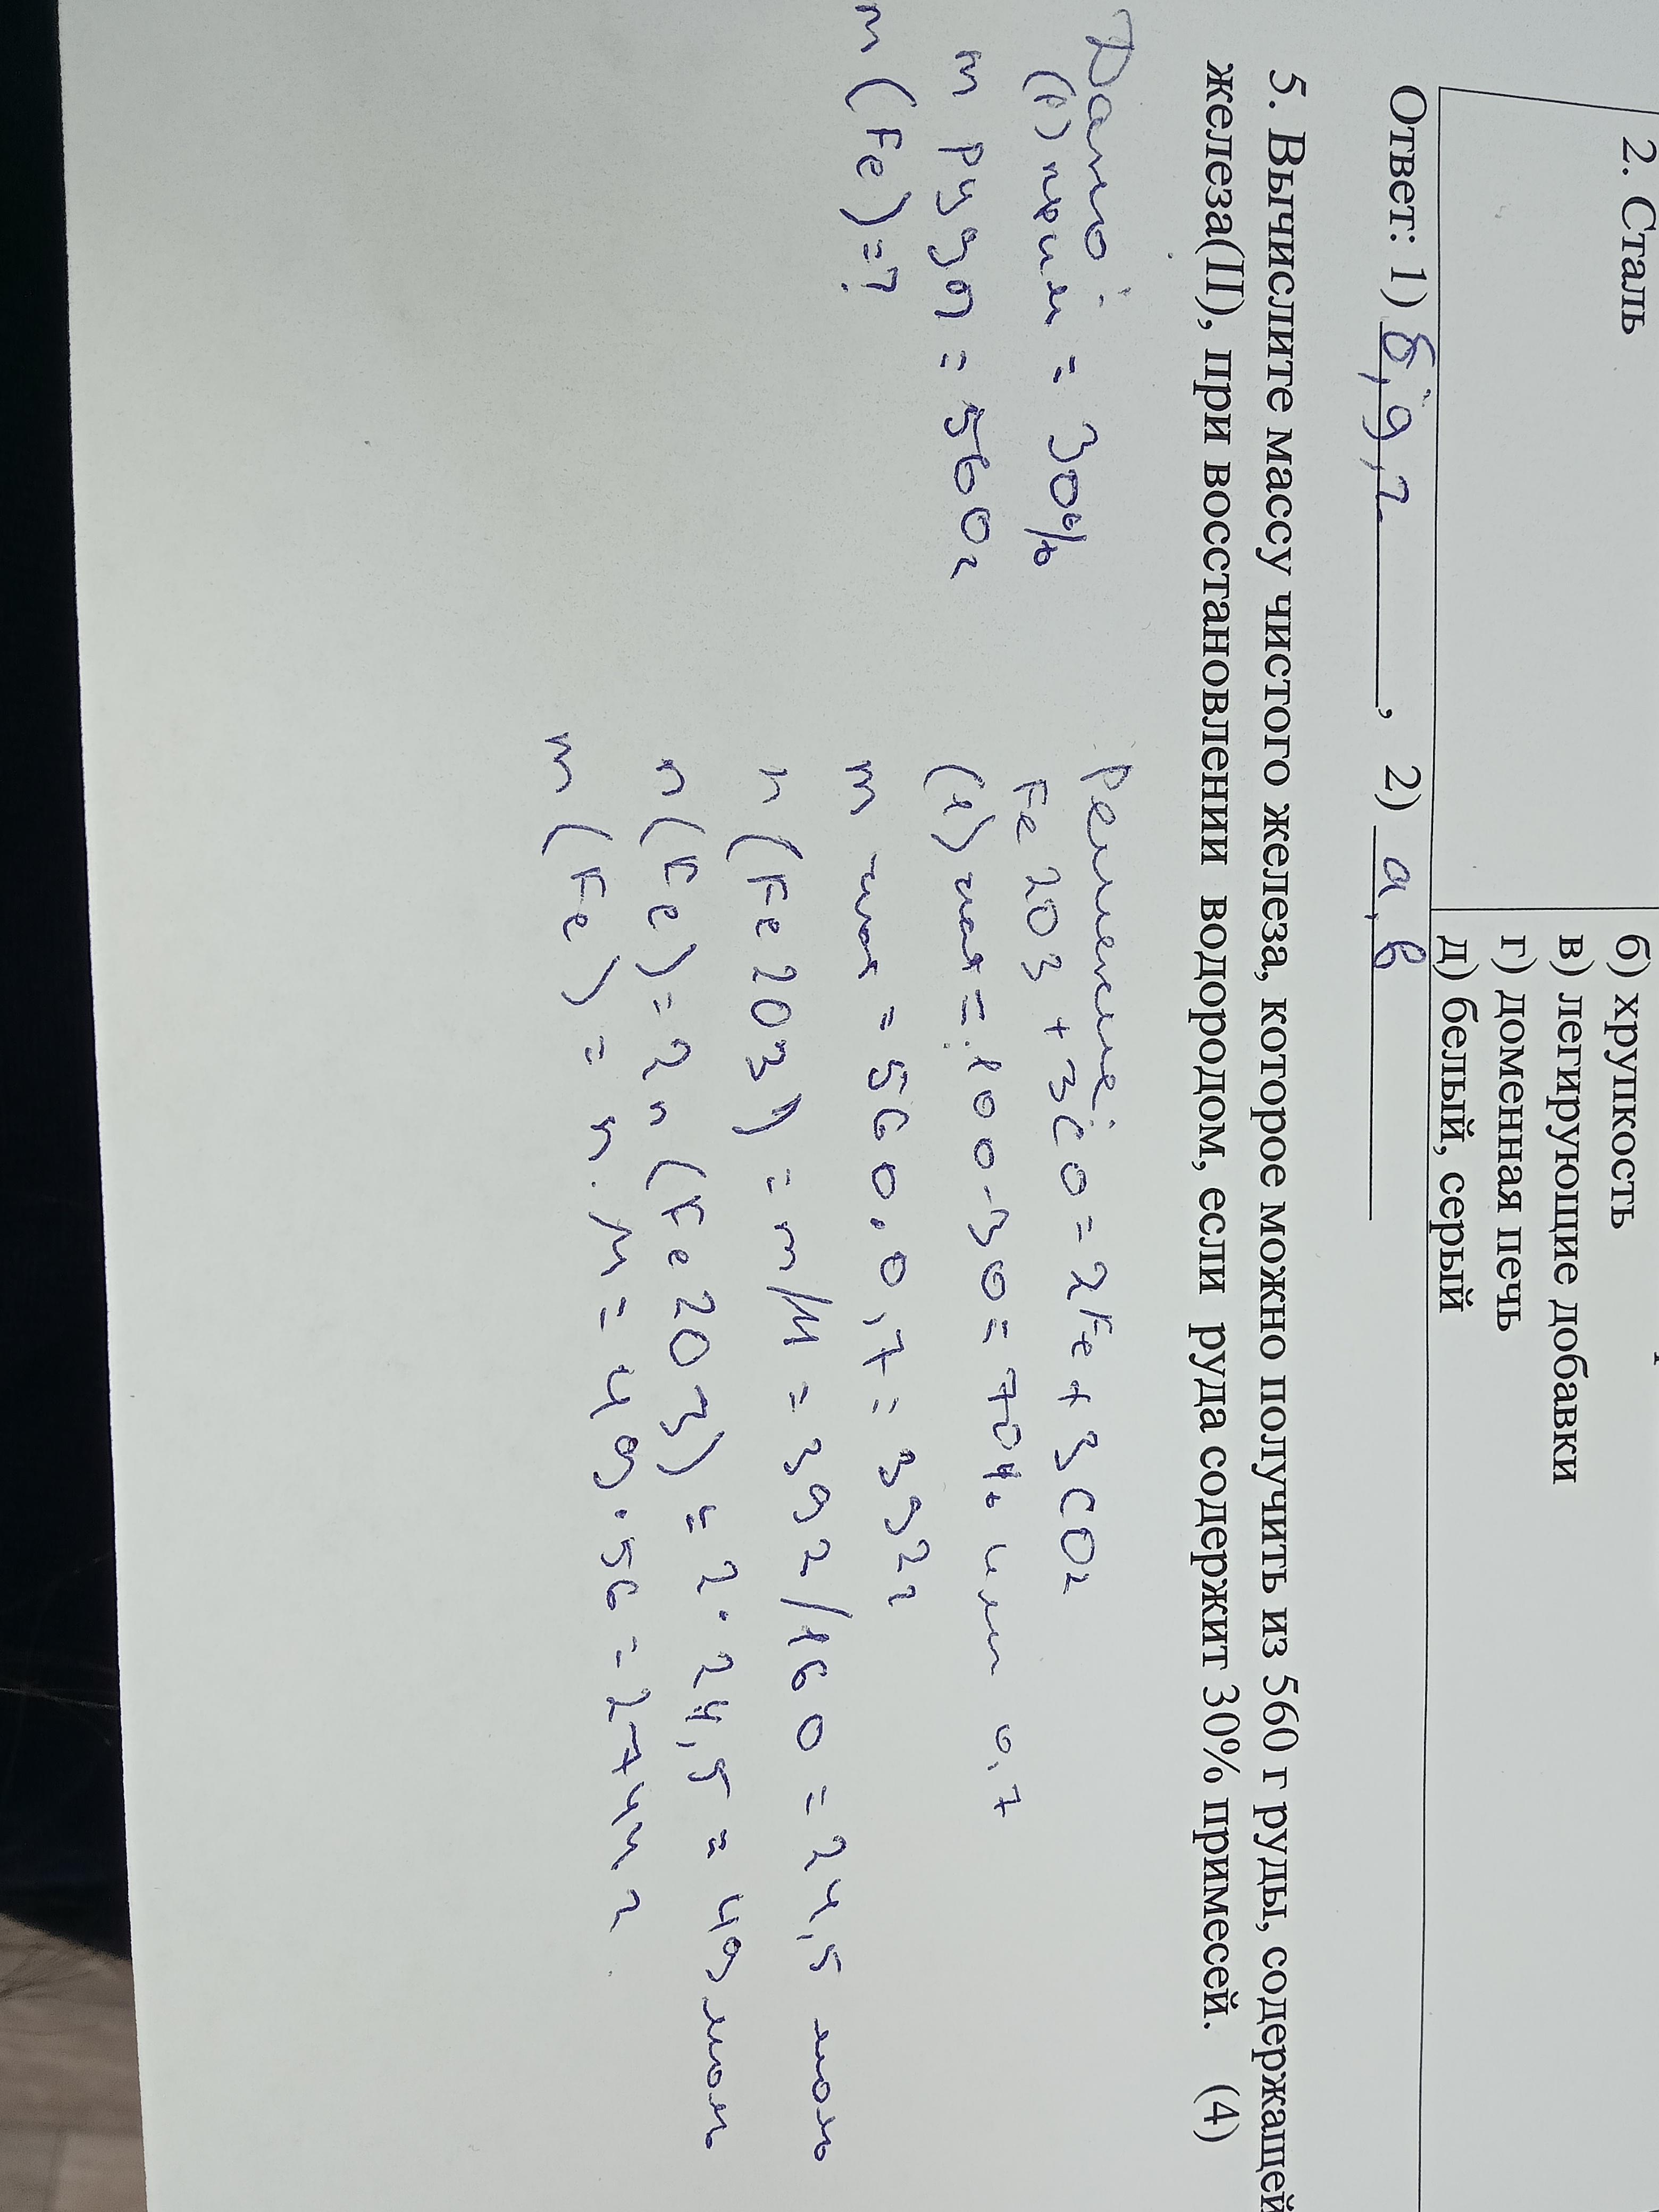 2. Сталь
б) хрупкость
в) легирующие добавки
г) доменная печь
д) белый, серый
Ответ: 1) б, д, г, 2) а, в
5. Вычислите массу чистого железа, которое можно получить из 560 г руды, содержащей
железа(II), при восстановлении водородом, если руда содержит 30% примесей. (4)
Дано:
(1) прим = 30%
m руды = 560г
m (Fe) = ?
Решение:
Fe2O3 + 3CO = 2Fe + 3CO2
(1) = 100-30 = 70% или 0,7
m = 560·0,7 = 392г
n (Fe2O3) = m/M = 392/160 = 24,5 моль
n (Fe) = 2n (Fe2O3) = 2·24,5 = 49 моль
m (Fe) = n·M = 49·56 = 2744 г